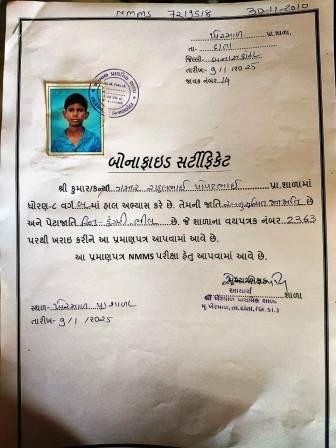 NMMS 7219518 30-11-2010
પ્રા.શાળા,
તા- દાંતા
જિલ્લો- બનાસકાંઠા
તારીખ- 9/1/2025
જાવક નંબર 14
બોનાફાઇડ સર્ટીફિકેટ
શ્રી કુમાર/કન્યા ગમાર રાહુલભાઇ પોપટભાઇ પ્રા.શાળામાં
ધોરણ-૮ વર્ગ માં હાલ અભ્યાસ કરે છે. તેમની જાતિ અનુસૂચિત જનજાતિ છે
અને પેટાજાતિ હિન્દુ ડુંગરી ભીલ છે. જે શાળાના વયપત્રક નંબર 2363
પરથી ખરાઇ કરીને આ પ્રમાણપત્ર આપવામાં આવે છે.
આ પ્રમાણપત્ર NMMS પરીક્ષા હેતુ આપવામાં આવે છે.
સ્થળ- પ્રા શાળા
તારીખ- 9/1/2025
આચાર્ય
શાળા
શ્રી પ્રાથમિક શાળા
મુ. તા.દાંતા,(બ.કાં.)